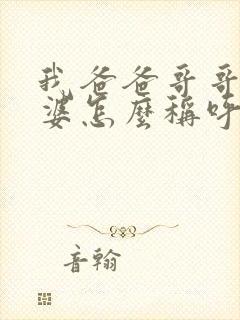 我爸爸哥哥
婆怎麼稱呼
音翰